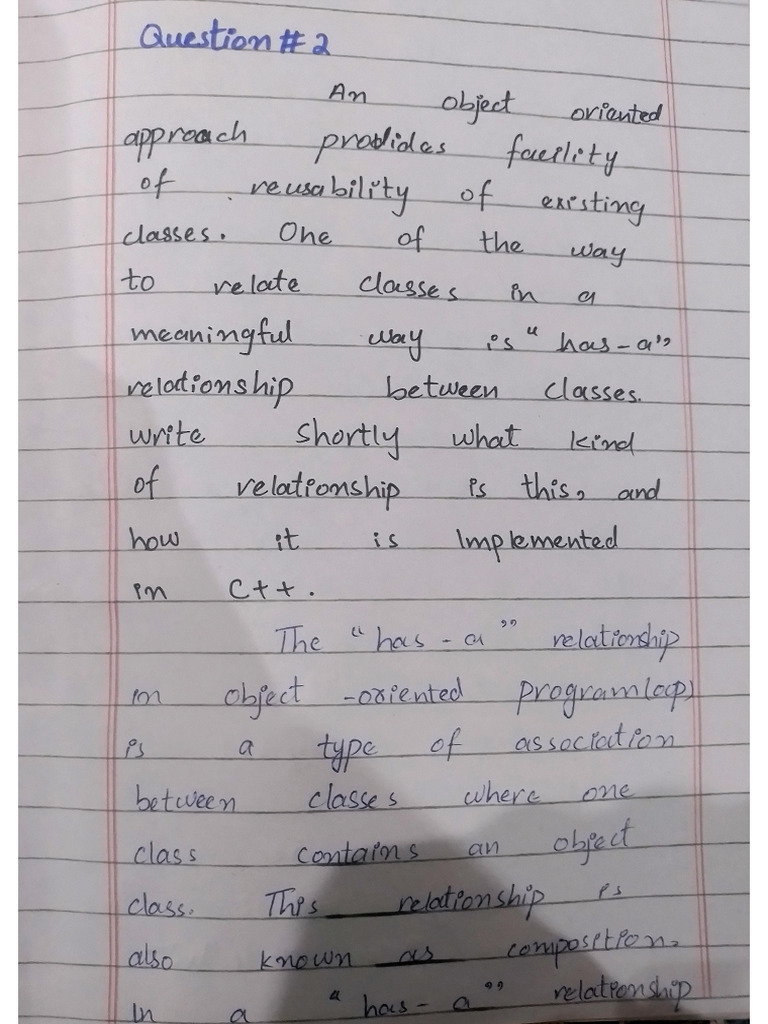 Question # 2
An object orianted
approach provides facility
of reusability of existing
classes. One of the way
to relate classes in a
meaningful way is "has-a"
relationship between classes.
write shortly what kind
of relationship is this, and
how it is Implemented
in C++.
The "has-a" relationship
in object-oriented program(oop)
is a type of association
between classes where one
class contains an object
class. This relationship is
also known as composition.
In a "has-a" relationship